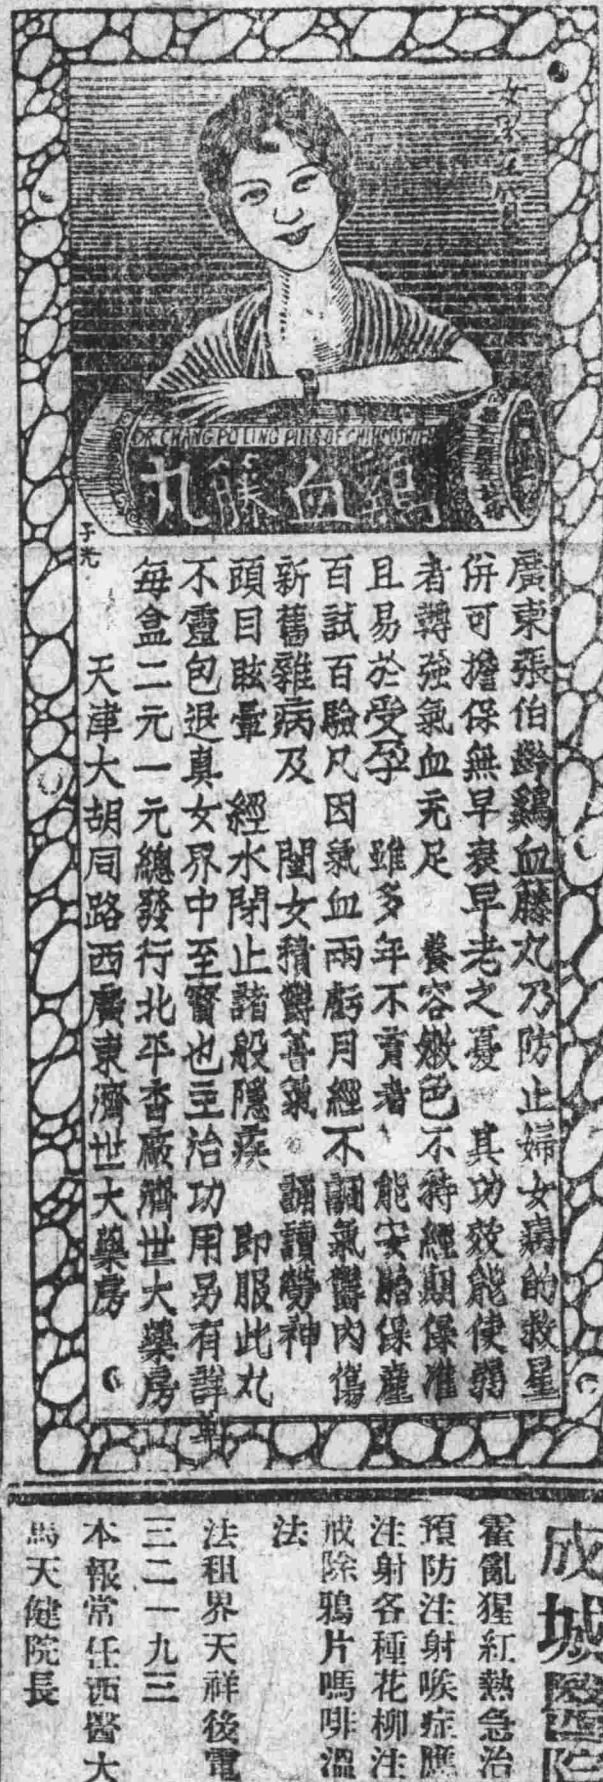 女界至寶
DR. CHANG PO LING PILLS OF
鷄血籐丸
子光
廣東張伯齡鷄血藤丸乃防止婦女病的救星
併可擔保無早衰早老之憂 其功效能使弱
者轉強氣血充足 養容嫩色不特經期保准
且易於受孕 雖多年不育者 能安胎保產
百試百驗凡因氣血兩虧月經不調氣鬱內傷
新舊雜病及 閨女積鬱善氣 誦讀勞神
頭目眩暈 經水閉止諸般隱疾 即服此丸
不靈包退真女界中至寶也主治功用另有詳單
每盒二元一元總發行北平香厰濟世大藥房
天津大胡同路西廣東濟世大藥房
成城醫院
霍亂猩紅熱急治
預防注射喉症應
注射各種花柳注
戒除鴉片嗎啡溫
法
法租界天祥後電
三二一九三
本報常任西醫大
馬天健院長